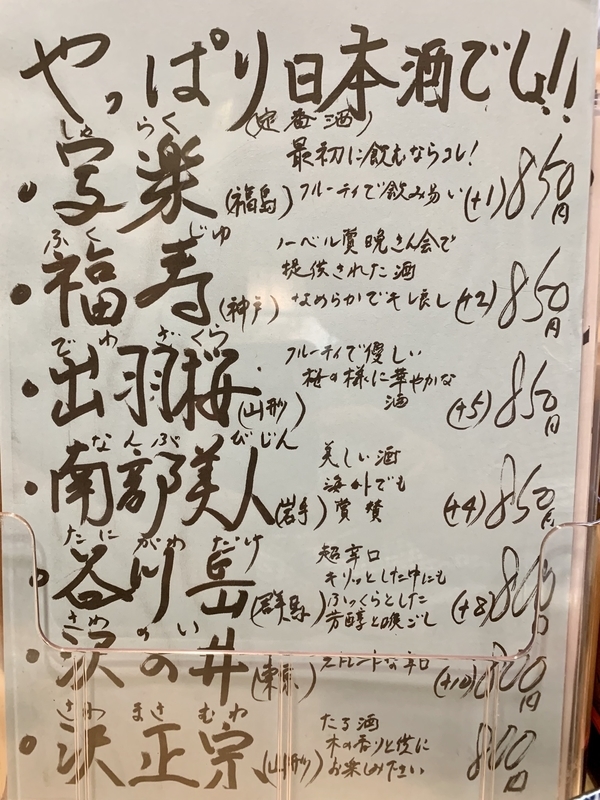 やっぱり日本酒でしょ!!
(定番酒)
しゃ らく
・写楽(福島)
最初に飲むならコレ!
フルーティで飲み易い(+1)850円
ふく じゅ
・福寿(神戸)
ノーベル賞晩さん会で
提供された酒
なめらかでキレ良し(+2)850円
でわ ざくら
・出羽桜(山形)
フルーティで優しい
桜の様に華やかな
酒(+5)850円
なんぶ びじん
・南部美人(岩手)
美しい酒
海外でも
賞賛(+4)850円
たに がわ だけ
・谷川岳(群馬)
超辛口
キリッとした中にも
ふっくらとした
芳醇と喉ごし(+8)800円
さわ の い
・沢の井(東京)
ストレートな辛口(+10)800円
さわ まさ むね
・沢正宗(山形)
たる酒
木の香りと供に
お楽しみ下さい
800円